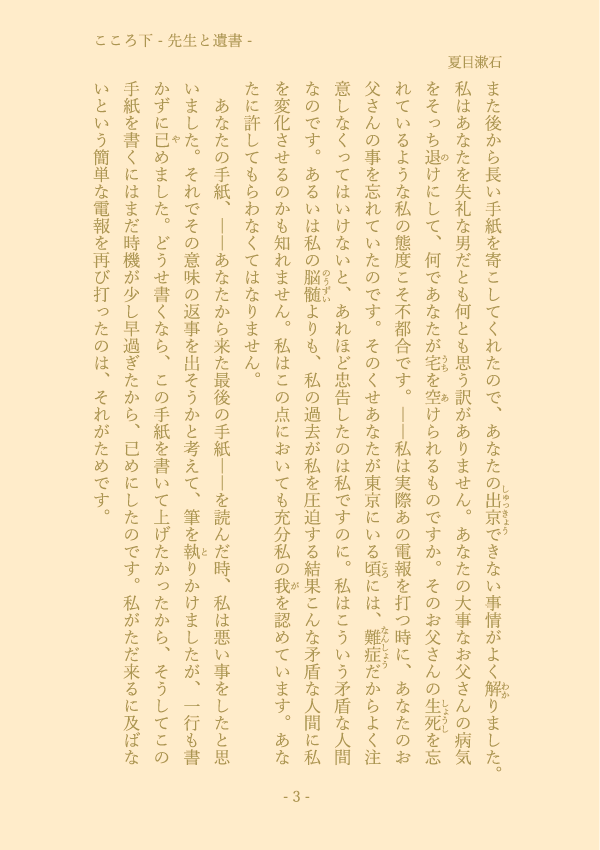 こころ下 - 先生と遺書 -
夏目漱石
また後から長い手紙を寄こしてくれたので、あなたの出京できない事情がよく解りました。
私はあなたを失礼な男だとも何とも思う訳がありません。あなたの大事なお父さんの病気
をそっち退けにして、何であなたが宅を空けられるものですか。そのお父さんの生死を忘
れているような私の態度こそ不都合です。――私は実際あの電報を打つ時に、あなたのお
父さんの事を忘れていたのです。そのくせあなたが東京にいる頃には、難症だからよく注
意しなくってはいけないと、あれほど忠告したのは私ですのに。私はこういう矛盾な人間
なのです。あるいは私の脳髄よりも、私の過去が私を圧迫する結果こんな矛盾な人間に私
を変化させるのかも知れません。私はこの点においても充分私の我を認めています。あな
たに許してもらわなくてはなりません。
あなたの手紙、――あなたから来た最後の手紙――を読んだ時、私は悪い事をしたと思
いました。それでその意味の返事を出そうかと考えて、筆を執りかけましたが、一行も書
かずに已めました。どうせ書くなら、この手紙を書いて上げたかったから、そうしてこの
手紙を書くにはまだ時機が少し早過ぎたから、已めにしたのです。私がただ来るに及ばな
いという簡単な電報を再び打ったのは、それがためです。
- 3 -